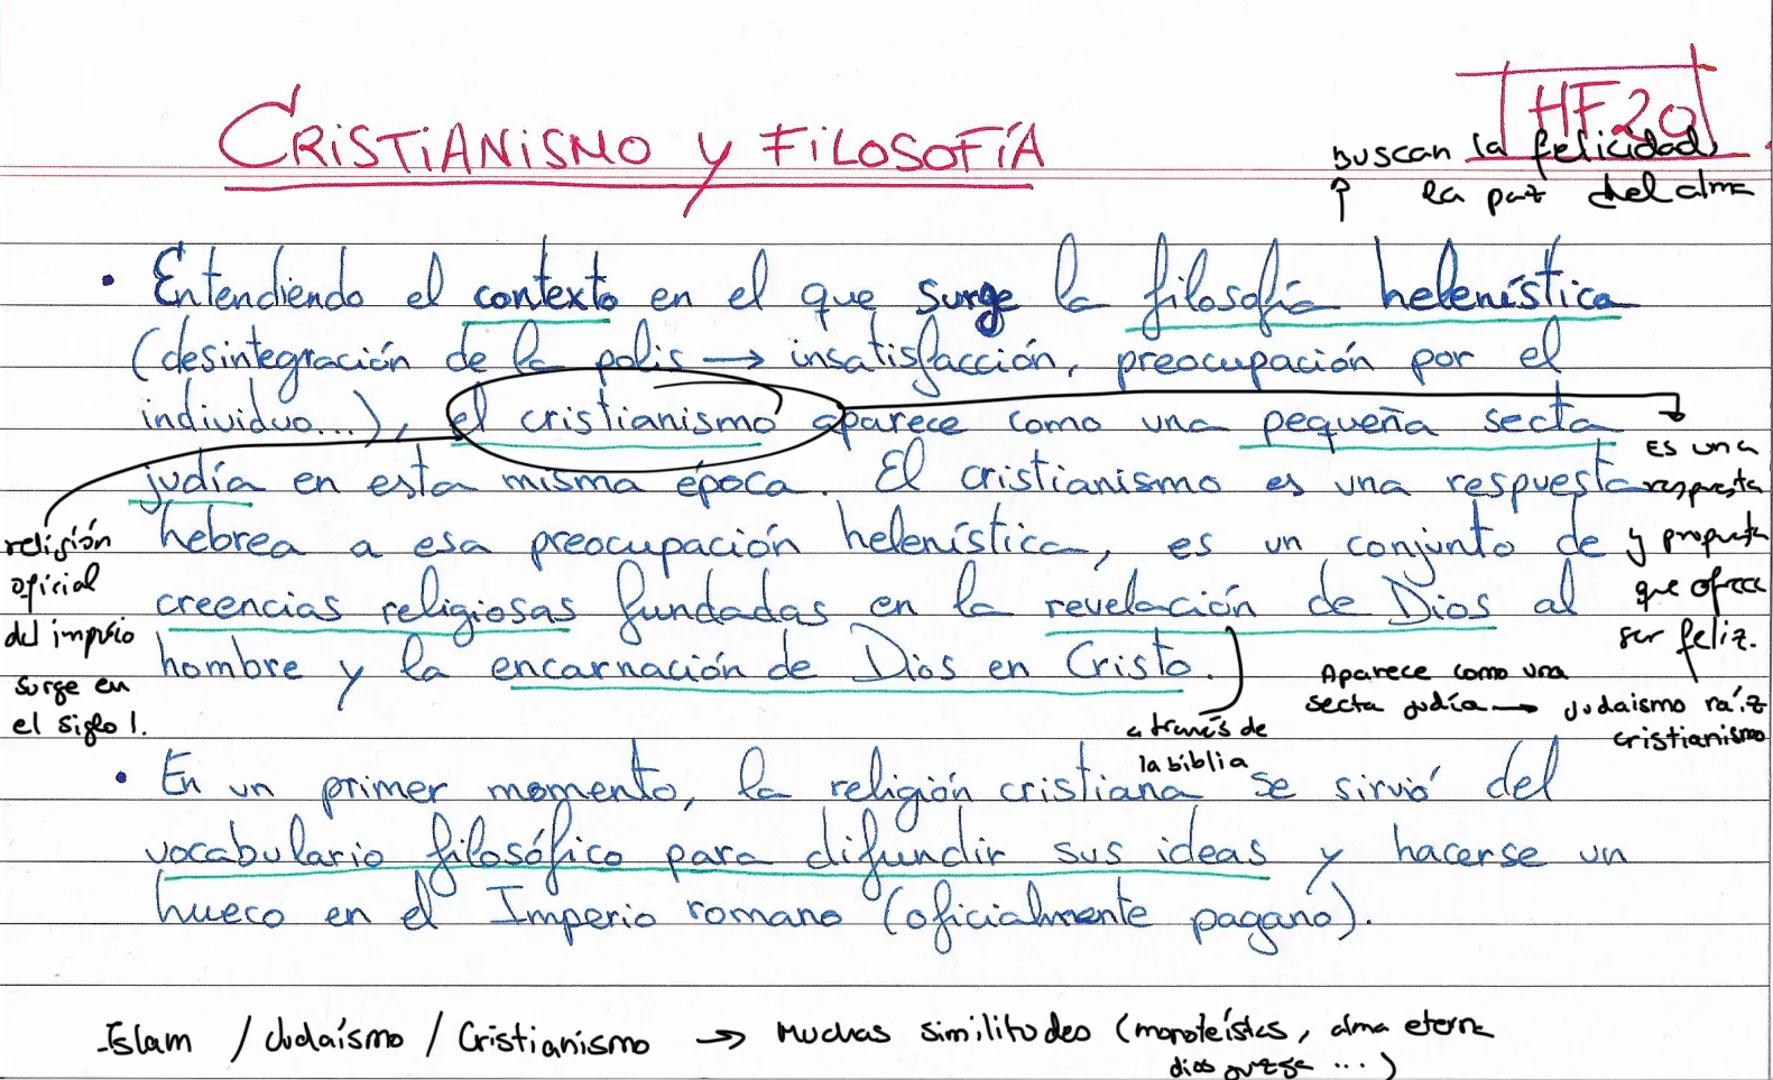 CRISTIANISMO y FILOSOFÍA
HF20
Buscan la felicidad
la paz del alma
• Entendiendo el contexto en el que surge la filosofía helenística
(desintegración de la polis → insatisfacción, preocupación por el
individuo...), el cristianismo aparece como una pequeña secta
judía en esta misma época. El cristianismo es una respuesta
hebrea a esa preocupación helenística, es un conjunto de
creencias religiosas fundadas en la revelación de Dios al
hombre y la encarnación de Dios en Cristo.
Es una
respuesta
y propuesta
que ofrece
ser feliz.
religión
oficial
del imperio
surge en
el siglo I.
Aparece como una
secta judía → Judaismo raíz
cristianismo
a través de
la biblia
• En un primer momento, la religión cristiana se sirvió del
vocabulario filosófico para difundir sus ideas y hacerse un
hueco en el Imperio romano (oficialmente pagano).
-Islam / Judaísmo / Cristianismo → Muchas similitudes (monoteístas, alma eterna
dios ...)